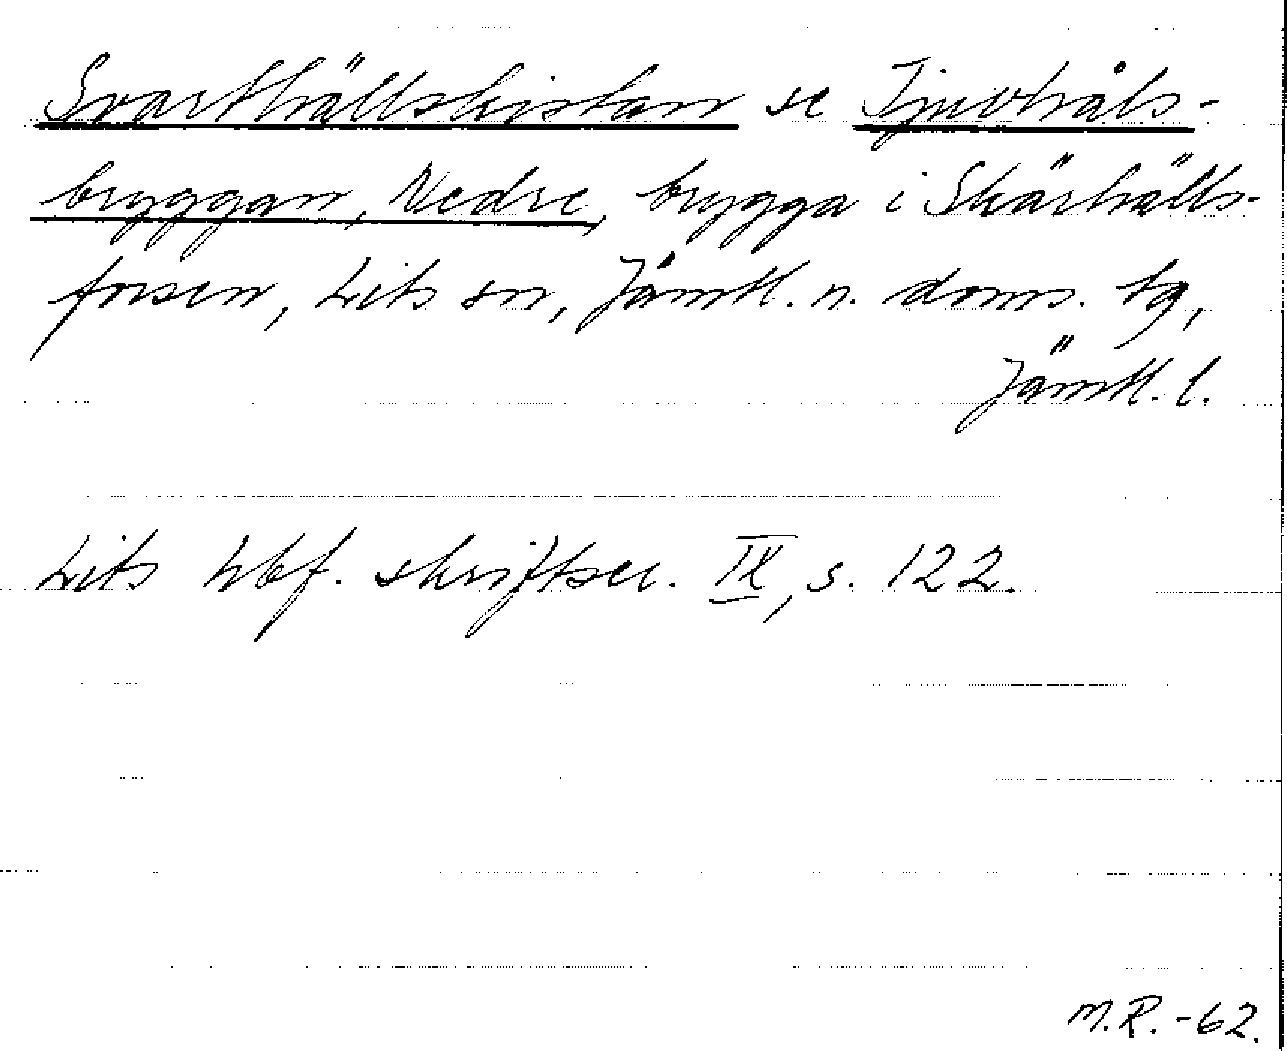 Svarthällskistan se Tjuvhåls-
bryggan, Nedre, brygga i Skärhälls-
forsen, Lits sn, Jämtl. n. doms. tg,
Jämtl. l.
Lits hbf. skriftser. IX, s. 122.
M.R. -62.